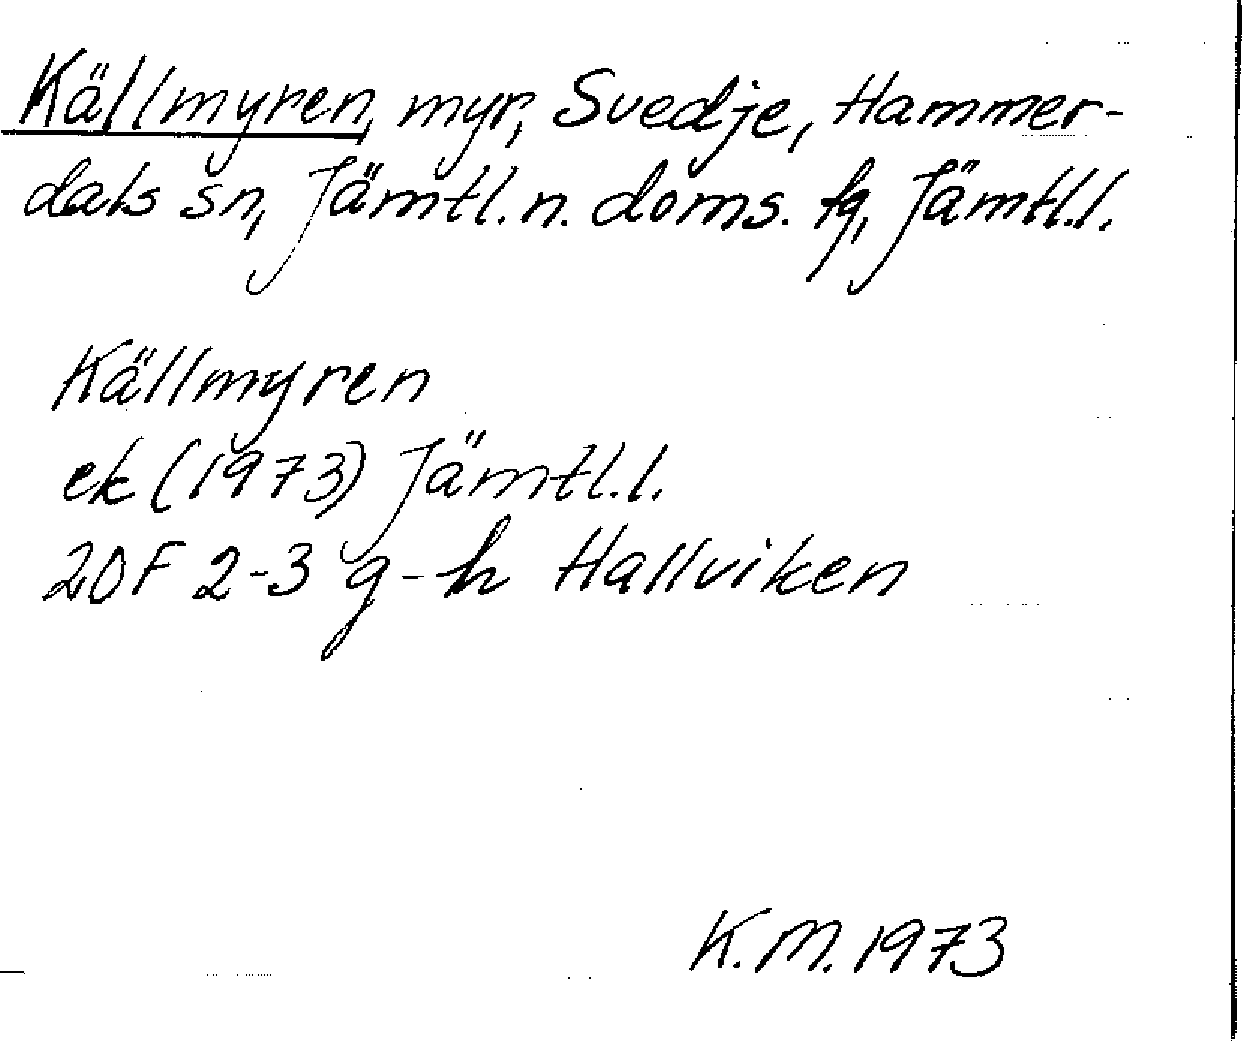 Källmyren, myr, Svedje, Hammer-
dals sn, Jämtl. n. doms. fq, Jämtl.l.
Källmyren
ek (1973) Jämtl.l.
20F 2-3 g-h Hallviken
K.M. 1973